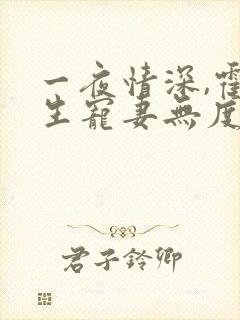 一夜情深,霍
生寵妻無度
君子鈴卿